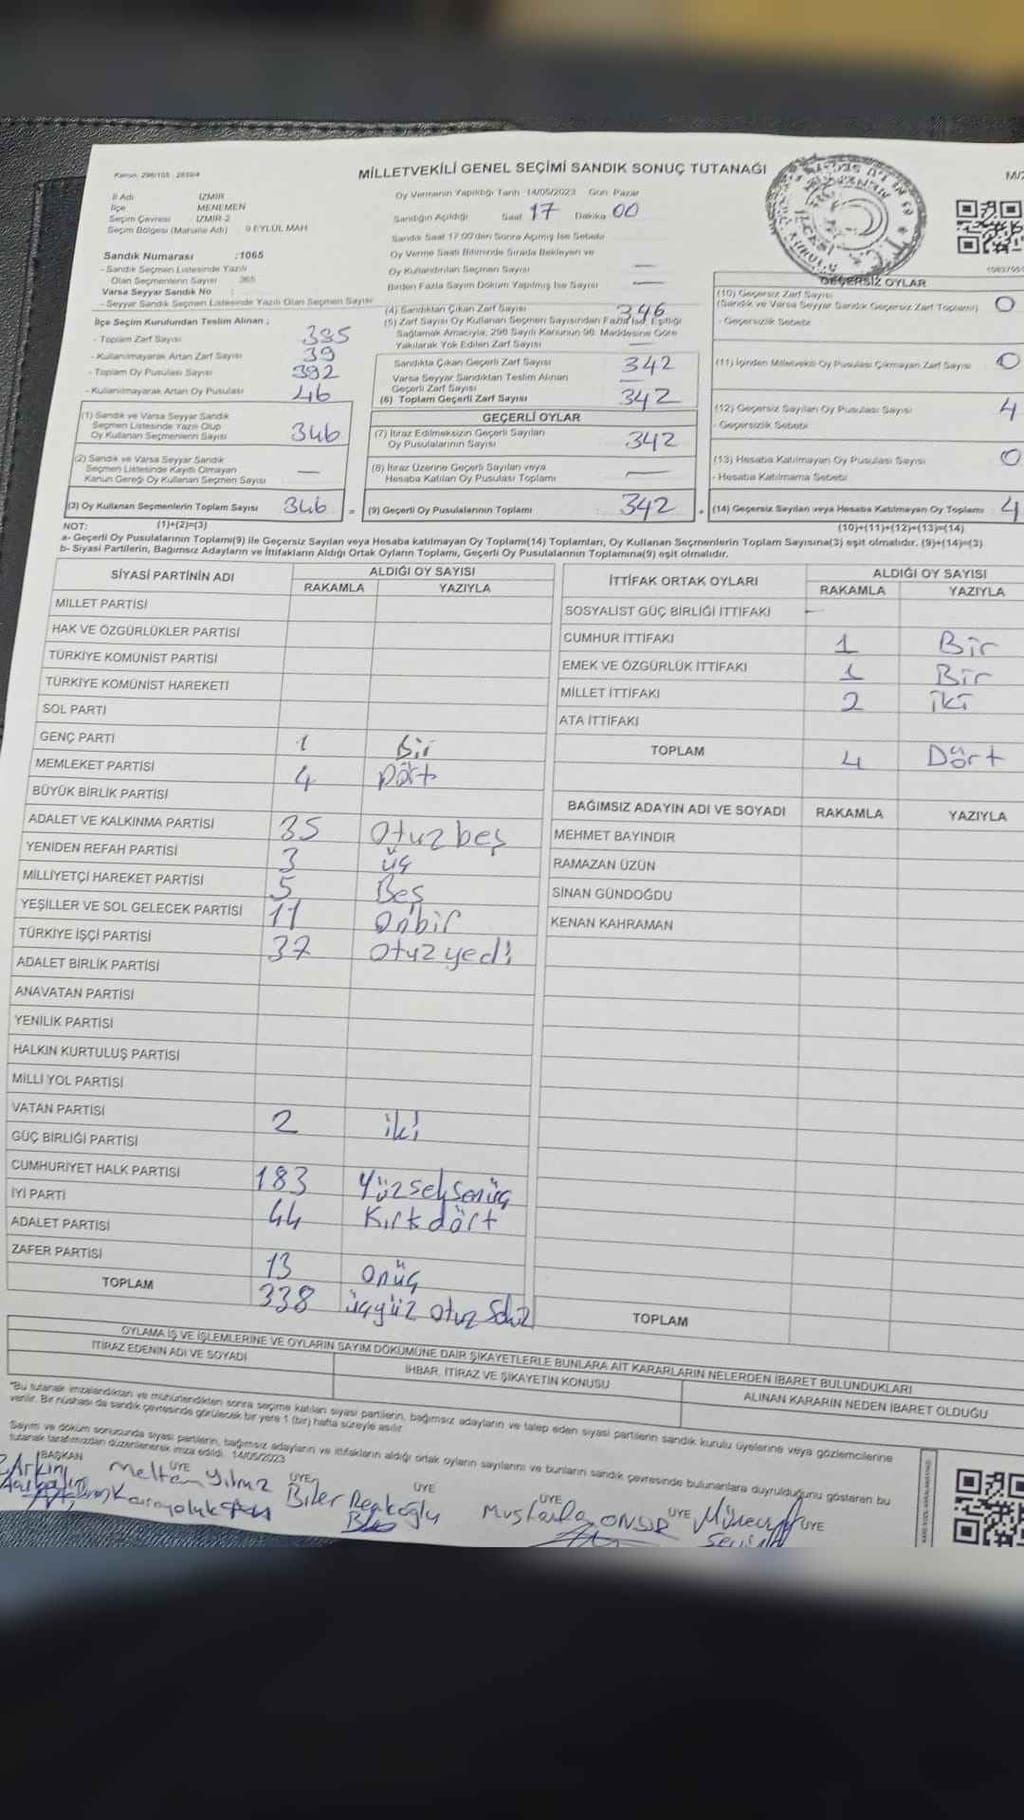 Kanun: 298/105 : 2839/4
MİLLETVEKİLİ GENEL SEÇİMİ SANDIK SONUÇ TUTANAĞI
İl Adı İZMİR
İlçe MENEMEN
Seçim Çevresi İZMİR-2
Seçim Bölgesi (Mahalle Adı) 9 EYLÜL MAH
Oy Vermenin Yapıldığı Tarih 14/05/2023 Gün Pazar
Sandığın Açıldığı Saat 17 Dakika 00
Sandık Saat 17.00'den Sonra Açılmış İse Sebebi
Oy Verme Saati Bitiminde Sırada Bekleyen ve
Oy Kullandırılan Seçmen Sayısı —
Birden Fazla Sayım Döküm Yapılmış İse Sayısı —
Sandık Numarası :1065
- Sandık Seçmen Listesinde Yazılı
Olan Seçmenlerin Sayısı 365
Varsa Seyyar Sandık No :
- Seyyar Sandık Seçmen Listesinde Yazılı Olan Seçmen Sayısı
İlçe Seçim Kurulundan Teslim Alınan ;
- Toplam Zarf Sayısı 385
- Kullanılmayarak Artan Zarf Sayısı 39
- Toplam Oy Pusulası Sayısı 392
- Kullanılmayarak Artan Oy Pusulası 46
(1) Sandık ve Varsa Seyyar Sandık
Seçmen Listesinde Yazılı Olup
Oy Kullanan Seçmenlerin Sayısı 346
(2) Sandık ve Varsa Seyyar Sandık
Seçmen Listesinde Kayıtlı Olmayan
Kanun Gereği Oy Kullanan Seçmen Sayısı —
(3) Oy Kullanan Seçmenlerin Toplam Sayısı 346 =
(4) Sandıktan Çıkan Zarf Sayısı 346
(5) Zarf Sayısı Oy Kullanan Seçmen Sayısından Fazla İse, Eşitliği
Sağlamak Amacıyla, 298 Sayılı Kanunun 98. Maddesine Göre
Yakılarak Yok Edilen Zarf Sayısı —
Sandıkta Çıkan Geçerli Zarf Sayısı 342
Varsa Seyyar Sandıktan Teslim Alınan
Geçerli Zarf Sayısı —
(6) Toplam Geçerli Zarf Sayısı 342
GEÇERLİ OYLAR
(7) İtiraz Edilmeksizin Geçerli Sayılan
Oy Pusulalarının Sayısı 342
(8) İtiraz Üzerine Geçerli Sayılan veya
Hesaba Katılan Oy Pusulası Toplamı —
(9) Geçerli Oy Pusulalarının Toplamı 342 +
GEÇERSİZ OYLAR
(10) Geçersiz Zarf Sayısı
(Sandık ve Varsa Seyyar Sandık Geçersiz Zarf Toplamı) 0
- Geçersizlik Sebebi
(11) İçinden Milletvekili Oy Pusulası Çıkmayan Zarf Sayısı 0
(12) Geçersiz Sayılan Oy Pusulası Sayısı 4
- Geçersizlik Sebebi
(13) Hesaba Katılmayan Oy Pusulası Sayısı 0
- Hesaba Katılmama Sebebi
(14) Geçersiz Sayılan veya Hesaba Katılmayan Oy Toplamı 4
NOT: (1)+(2)=(3) (10)+(11)+(12)+(13)=(14)
a- Geçerli Oy Pusulalarının Toplamı(9) ile Geçersiz Sayılan veya Hesaba katılmayan Oy Toplamı(14) Toplamları, Oy Kullanan Seçmenlerin Toplam Sayısına(3) eşit olmalıdır. (9)+(14)=(3)
b- Siyasi Partilerin, Bağımsız Adayların ve İttifakların Aldığı Ortak Oyların Toplamı, Geçerli Oy Pusulalarının Toplamına(9) eşit olmalıdır.
SİYASİ PARTİNİN ADI ALDIĞI OY SAYISI
RAKAMLA YAZIYLA
MİLLET PARTİSİ
HAK VE ÖZGÜRLÜKLER PARTİSİ
TÜRKİYE KOMÜNİST PARTİSİ
TÜRKİYE KOMÜNİST HAREKETİ
SOL PARTİ
GENÇ PARTİ 1 Bir
MEMLEKET PARTİSİ 4 Dört
BÜYÜK BİRLİK PARTİSİ
ADALET VE KALKINMA PARTİSİ 35 Otuz beş
YENİDEN REFAH PARTİSİ 3 üç
MİLLİYETÇİ HAREKET PARTİSİ 5 Beş
YEŞİLLER VE SOL GELECEK PARTİSİ 11 Onbir
TÜRKİYE İŞÇİ PARTİSİ 37 Otuz yedi
ADALET BİRLİK PARTİSİ
ANAVATAN PARTİSİ
YENİLİK PARTİSİ
HALKIN KURTULUŞ PARTİSİ
MİLLİ YOL PARTİSİ
VATAN PARTİSİ 2 iki
GÜÇ BİRLİĞİ PARTİSİ
CUMHURİYET HALK PARTİSİ 183 Yüzseksenüç
İYİ PARTİ 44 Kırk dört
ADALET PARTİSİ
ZAFER PARTİSİ 13 onüç
TOPLAM 338 üçyüz otuz sekiz
İTTİFAK ORTAK OYLARI ALDIĞI OY SAYISI
RAKAMLA YAZIYLA
SOSYALİST GÜÇ BİRLİĞİ İTTİFAKI —
CUMHUR İTTİFAKI 1 Bir
EMEK VE ÖZGÜRLÜK İTTİFAKI 1 Bir
MİLLET İTTİFAKI 2 iki
ATA İTTİFAKI
TOPLAM 4 Dört
BAĞIMSIZ ADAYIN ADI VE SOYADI RAKAMLA YAZIYLA
MEHMET BAYINDIR
RAMAZAN ÜZÜN
SİNAN GÜNDOĞDU
KENAN KAHRAMAN
TOPLAM
OYLAMA İŞ VE İŞLEMLERİNE VE OYLARIN SAYIM DÖKÜMÜNE DAİR ŞİKAYETLERLE BUNLARA AİT KARARLARIN NELERDEN İBARET BULUNDUKLARI
İTİRAZ EDENİN ADI VE SOYADI İHBAR, İTİRAZ VE ŞİKAYETİN KONUSU ALINAN KARARIN NEDEN İBARET OLDUĞU
"Bu tutanak imzalandıktan ve mühürlendikten sonra seçime katılan siyasi partilerin, bağımsız adayların ve talep eden siyasi partilerin sandık kurulu üyelerine veya gözlemcilerine
verilir. Bir nüshası da sandık çevresinde görülecek bir yere 1 (bir) hafta süreyle asılır
Sayım ve döküm sonucunda siyasi partilerin, bağımsız adayların ve ittifakların aldığı ortak oyların sayılarını ve bunların sandık çevresinde bulunanlara duyrulduğunu gösteren bu
tutanak tarafımızdan düzenlenerek imza edildi. 14/05/2023
BAŞKAN ÜYE ÜYE ÜYE ÜYE ÜYE ÜYE
Meltem Yılmaz
Mustafa ONUR